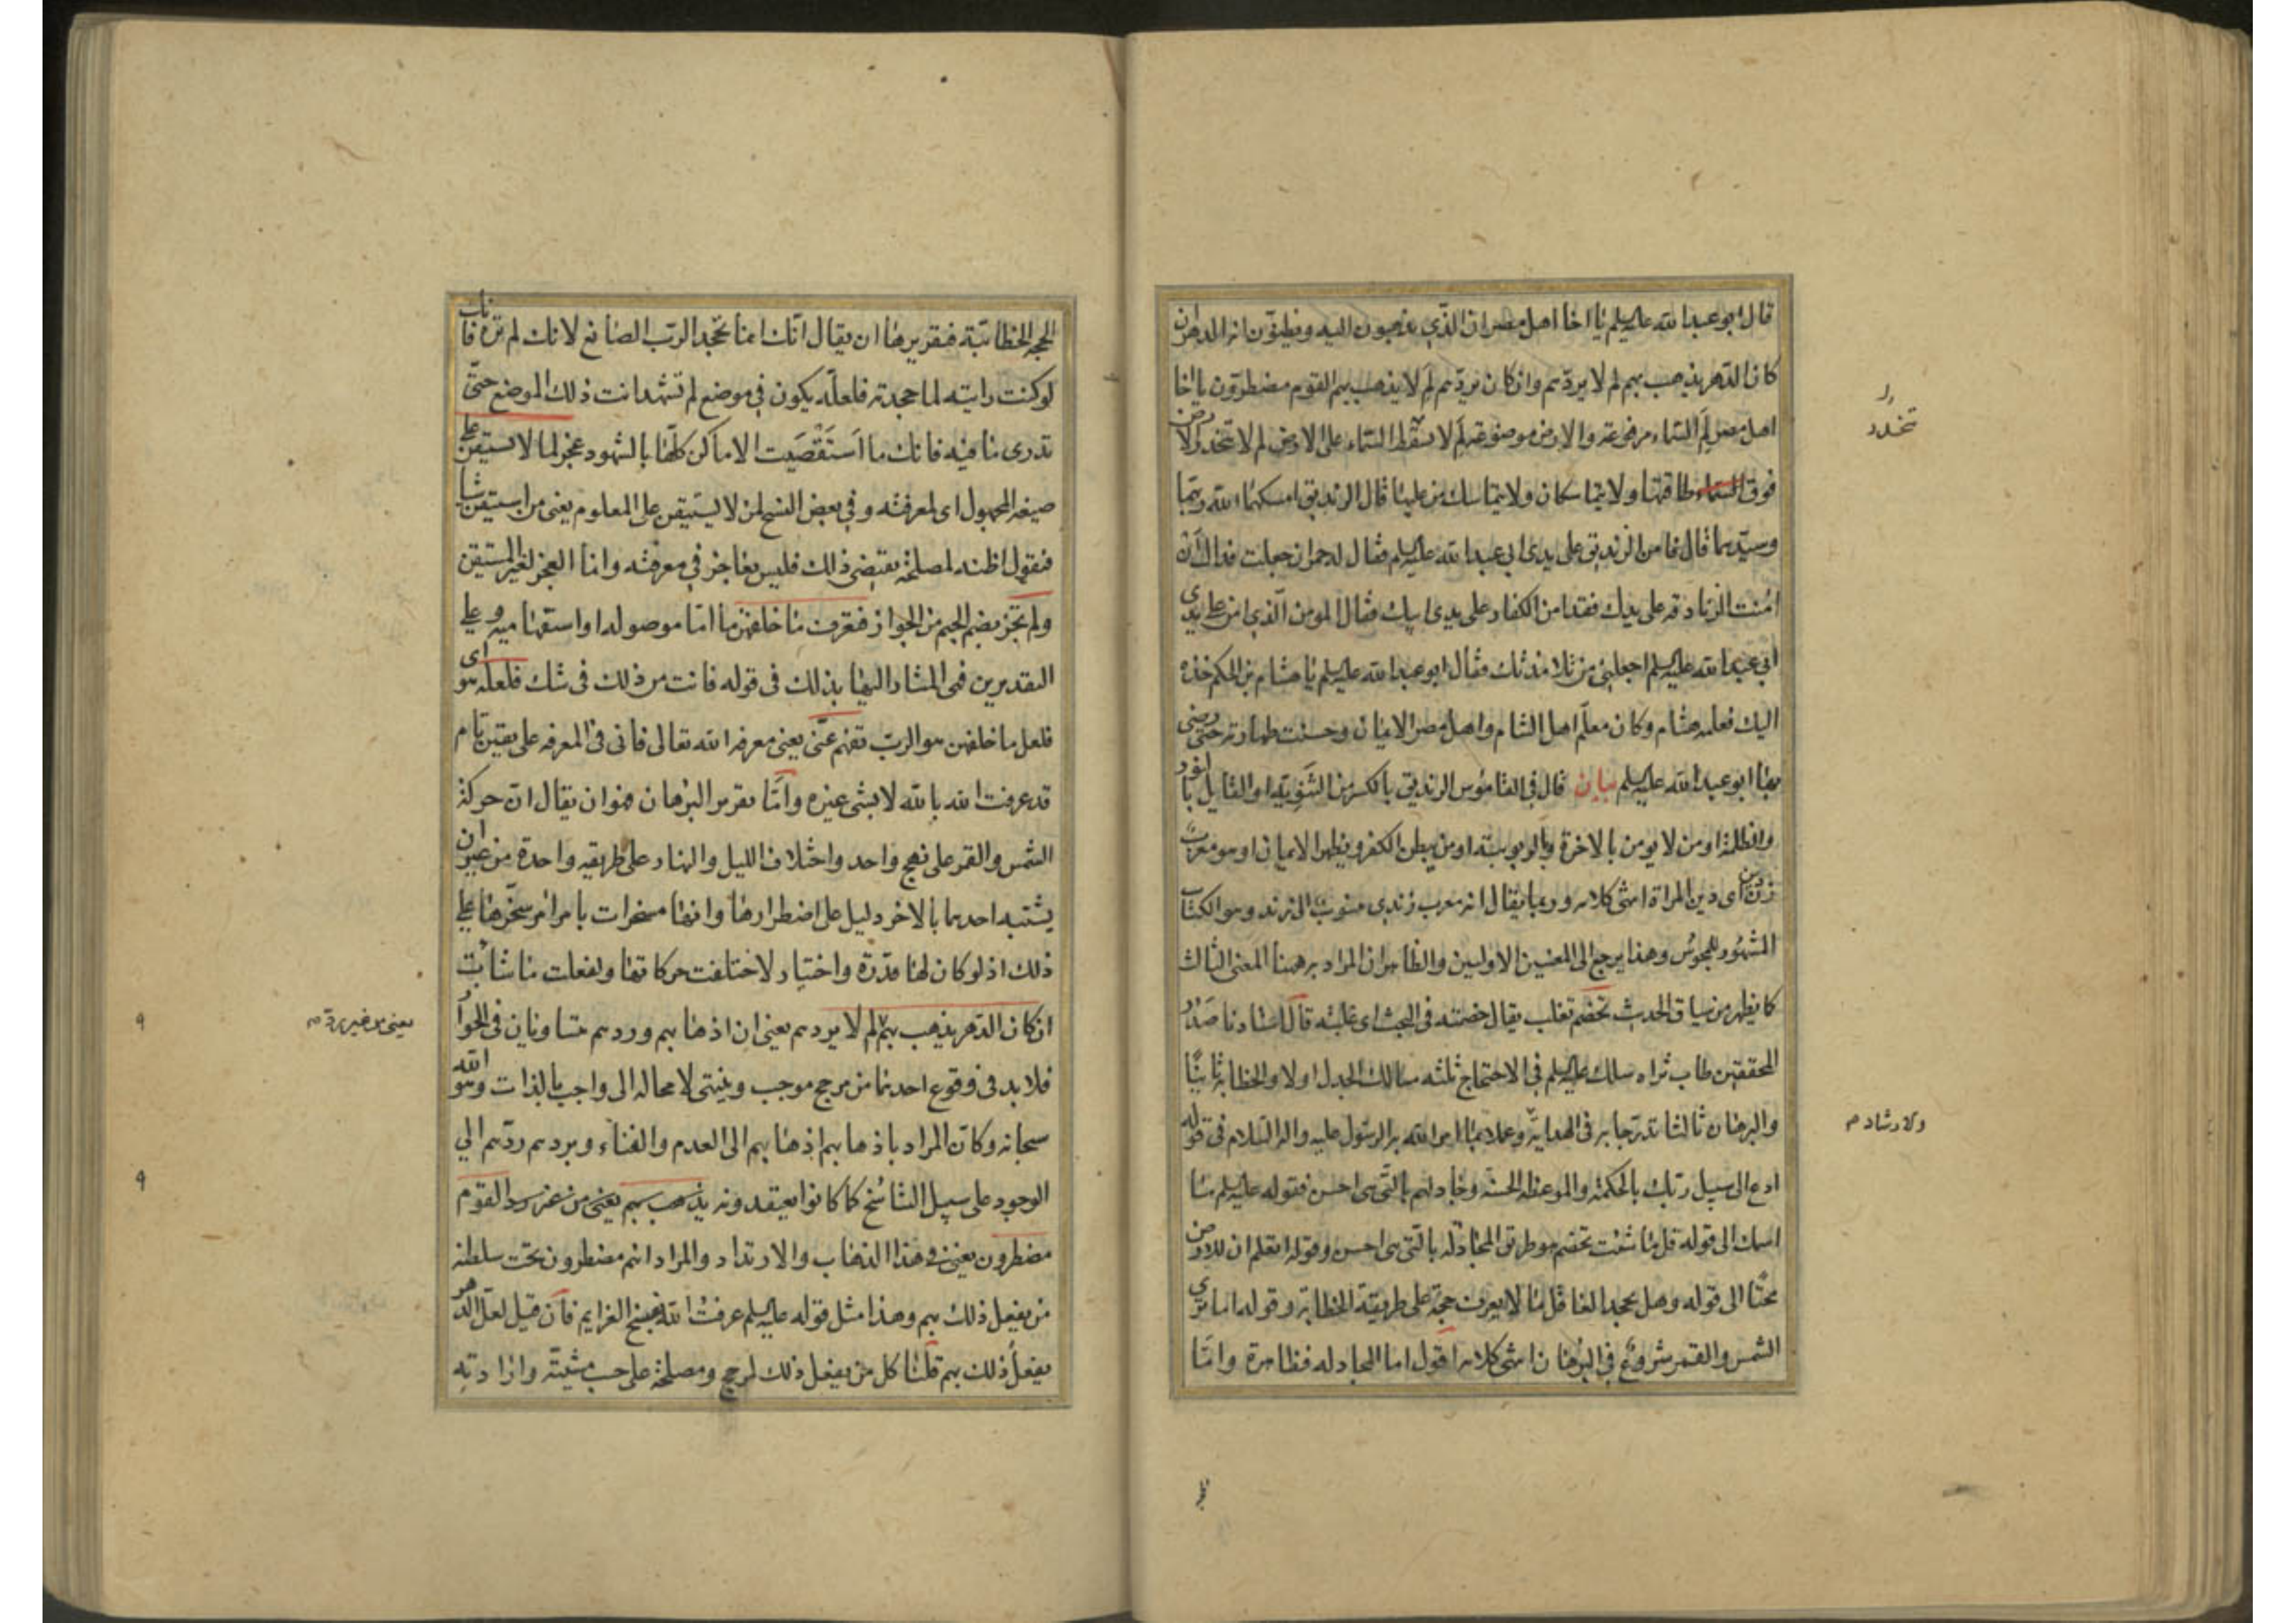 قال ابو عبدا لله عليه السلم يا اخا اهل مصر ان الذي تذهبون اليه وتظنون انه الدهر ان
كان الدهر يذهب بهم لم لا يردهم وان كان يردهم لم لا يذهب بهم القوم مضطرون يا اخا
اهل مصر لم السماء مرفوعة والارض موضوعة لم لا يسقط السماء على الارض لم لا تنحدر الارض
فوق طاقتها ولا يتماسكان ولا يتماسك من عليها قال الزنديق امسكهما الله ربهما
وسيدهما قال فامن الزنديق على يدى ابى عبدا لله عليه السلم فقال له حمران جعلت فداك ان
امنت الزنادقة على يديك فقد امن الكفار على يدى ابيك فقال المومن الذي امن على يدي
ابي عبدا لله عليه السلم اجعلني من تلامذتك فقال ابو عبدا لله عليه السلم يا هشام بن الحكم خذه
اليك فعلمه هشام وكان معلم اهل الشام واهل مصر الايمان وحسنت طهارته حتى رضي
بها ابو عبدا لله عليه السلم بيان قال في القاموس الزنديق بالكسر من الثنوية او القايل بالنور
والظلمة او من لا يومن بالاخرة وبالربوبية او من يبطن الكفر ويظهر الايمان او هو معرب
زن دين اى دين المراة انتهى كلامه وربما يقال انه معرب زندى منسوب الى زند وهو الكتاب
المشهور للمجوس وهذا يرجع الى المعنيين الاولين والظاهر ان المراد به ههنا المعنى الثالث
كما يظهر من سياق الحديث تخصم تغلب يقال خصمته في البحث اى غلبته قال استادنا صدر
المحققين طاب ثراه سلك عليه السلم في الاحتجاج ثلثة مسالك الجدل اولا والخطابة ثانيا
والبرهان ثالثا تدرجا به في الهداية وعملا بما امر الله به الرسول عليه واله السلام في قوله
ادع الى سبيل ربك بالحكمة والموعظة الحسنة وجادلهم بالتى هى احسن فقوله عليه السلم ما
اسمك الى قوله قل ما شئت تخصم هو طريق المجادلة بالتي هى احسن وقوله اتعلم ان للارض
تحتا الى قوله وهل يجحد العاقل ما لا يعرف حجة على طريقة الخطابة وقوله اما ترى
الشمس والقمر شروع في البرهان انتهى كلامه اقول اما المجادلة فظاهرة واما
تنحدر
والارشاد
الحجة الخطابية فتقريرها ان يقال انك انما تجحد الرب الصانع لانك لم تره فانك
لو كنت رايته لما جحدته فلعله يكون في موضع لم تشهد انت ذلك الموضع حتى
تدرى ما فيه فانك ما استقصيت الاماكن كلها بالشهود عجز لما لا يستيقن على
صيغة المجهول اى لمعرفته وفي بعض النسخ لمن لا يستيقن على المعلوم يعنى من استيقن شيئا
فنقول اظنه لمصلحة يقتضى ذلك فليس بعاجز في معرفته وانما العجز لغير المستيقن
ولم تجز بضم الجيم من الجواز فتعرف ما خلفهن ما اما موصولة او استفهامية وعلى
التقديرين فهى المشار اليها بذلك في قوله فانت من ذلك في شك فلعله هو اى
فلعل ما خلفهن هو الرب تفهم عنى يعنى معرفة الله تعالى فانى في المعرفة على يقين تام
قد عرفت الله بالله لا بشى غيره واما تقرير البرهان فهو ان يقال ان حركة
الشمس والقمر على نهج واحد واختلاف الليل والنهار على طريقة واحدة من غير ان
يشتبه احدهما بالاخر دليل على اضطرارها وانها مسخرات بامر امر سخرها على
ذلك اذ لو كان لها قدرة واختيار لاختلفت حركاتها ولفعلت ما شائت
ان كان الدهر يذهب بهم لم لا يردهم يعنى ان اذهابهم وردهم متساويان في الجواز
فلا بد في وقوع احدهما من مرجح موجب وينتهى لا محالة الى واجب بالذات وهو الله
سبحانه وكان المراد باذهابهم اذهابهم الى العدم والفناء وبردهم ردهم الي
الوجود على سبيل التناسخ كما كانوا يعتقدونه يذهب بهم يعنى من غير رد القوم
مضطرون يعنى في هذا الذهاب والارتداد والمراد انهم مضطرون تحت سلطنة
من يفعل ذلك بهم وهذا مثل قوله عليه السلم عرفت الله بفسخ العزايم فان قيل لعل الدهر
يفعل ذلك بهم قلنا كل من يفعل ذلك لمرجح ومصلحة على حسب مشيته وارادته
يعنى من غير رد